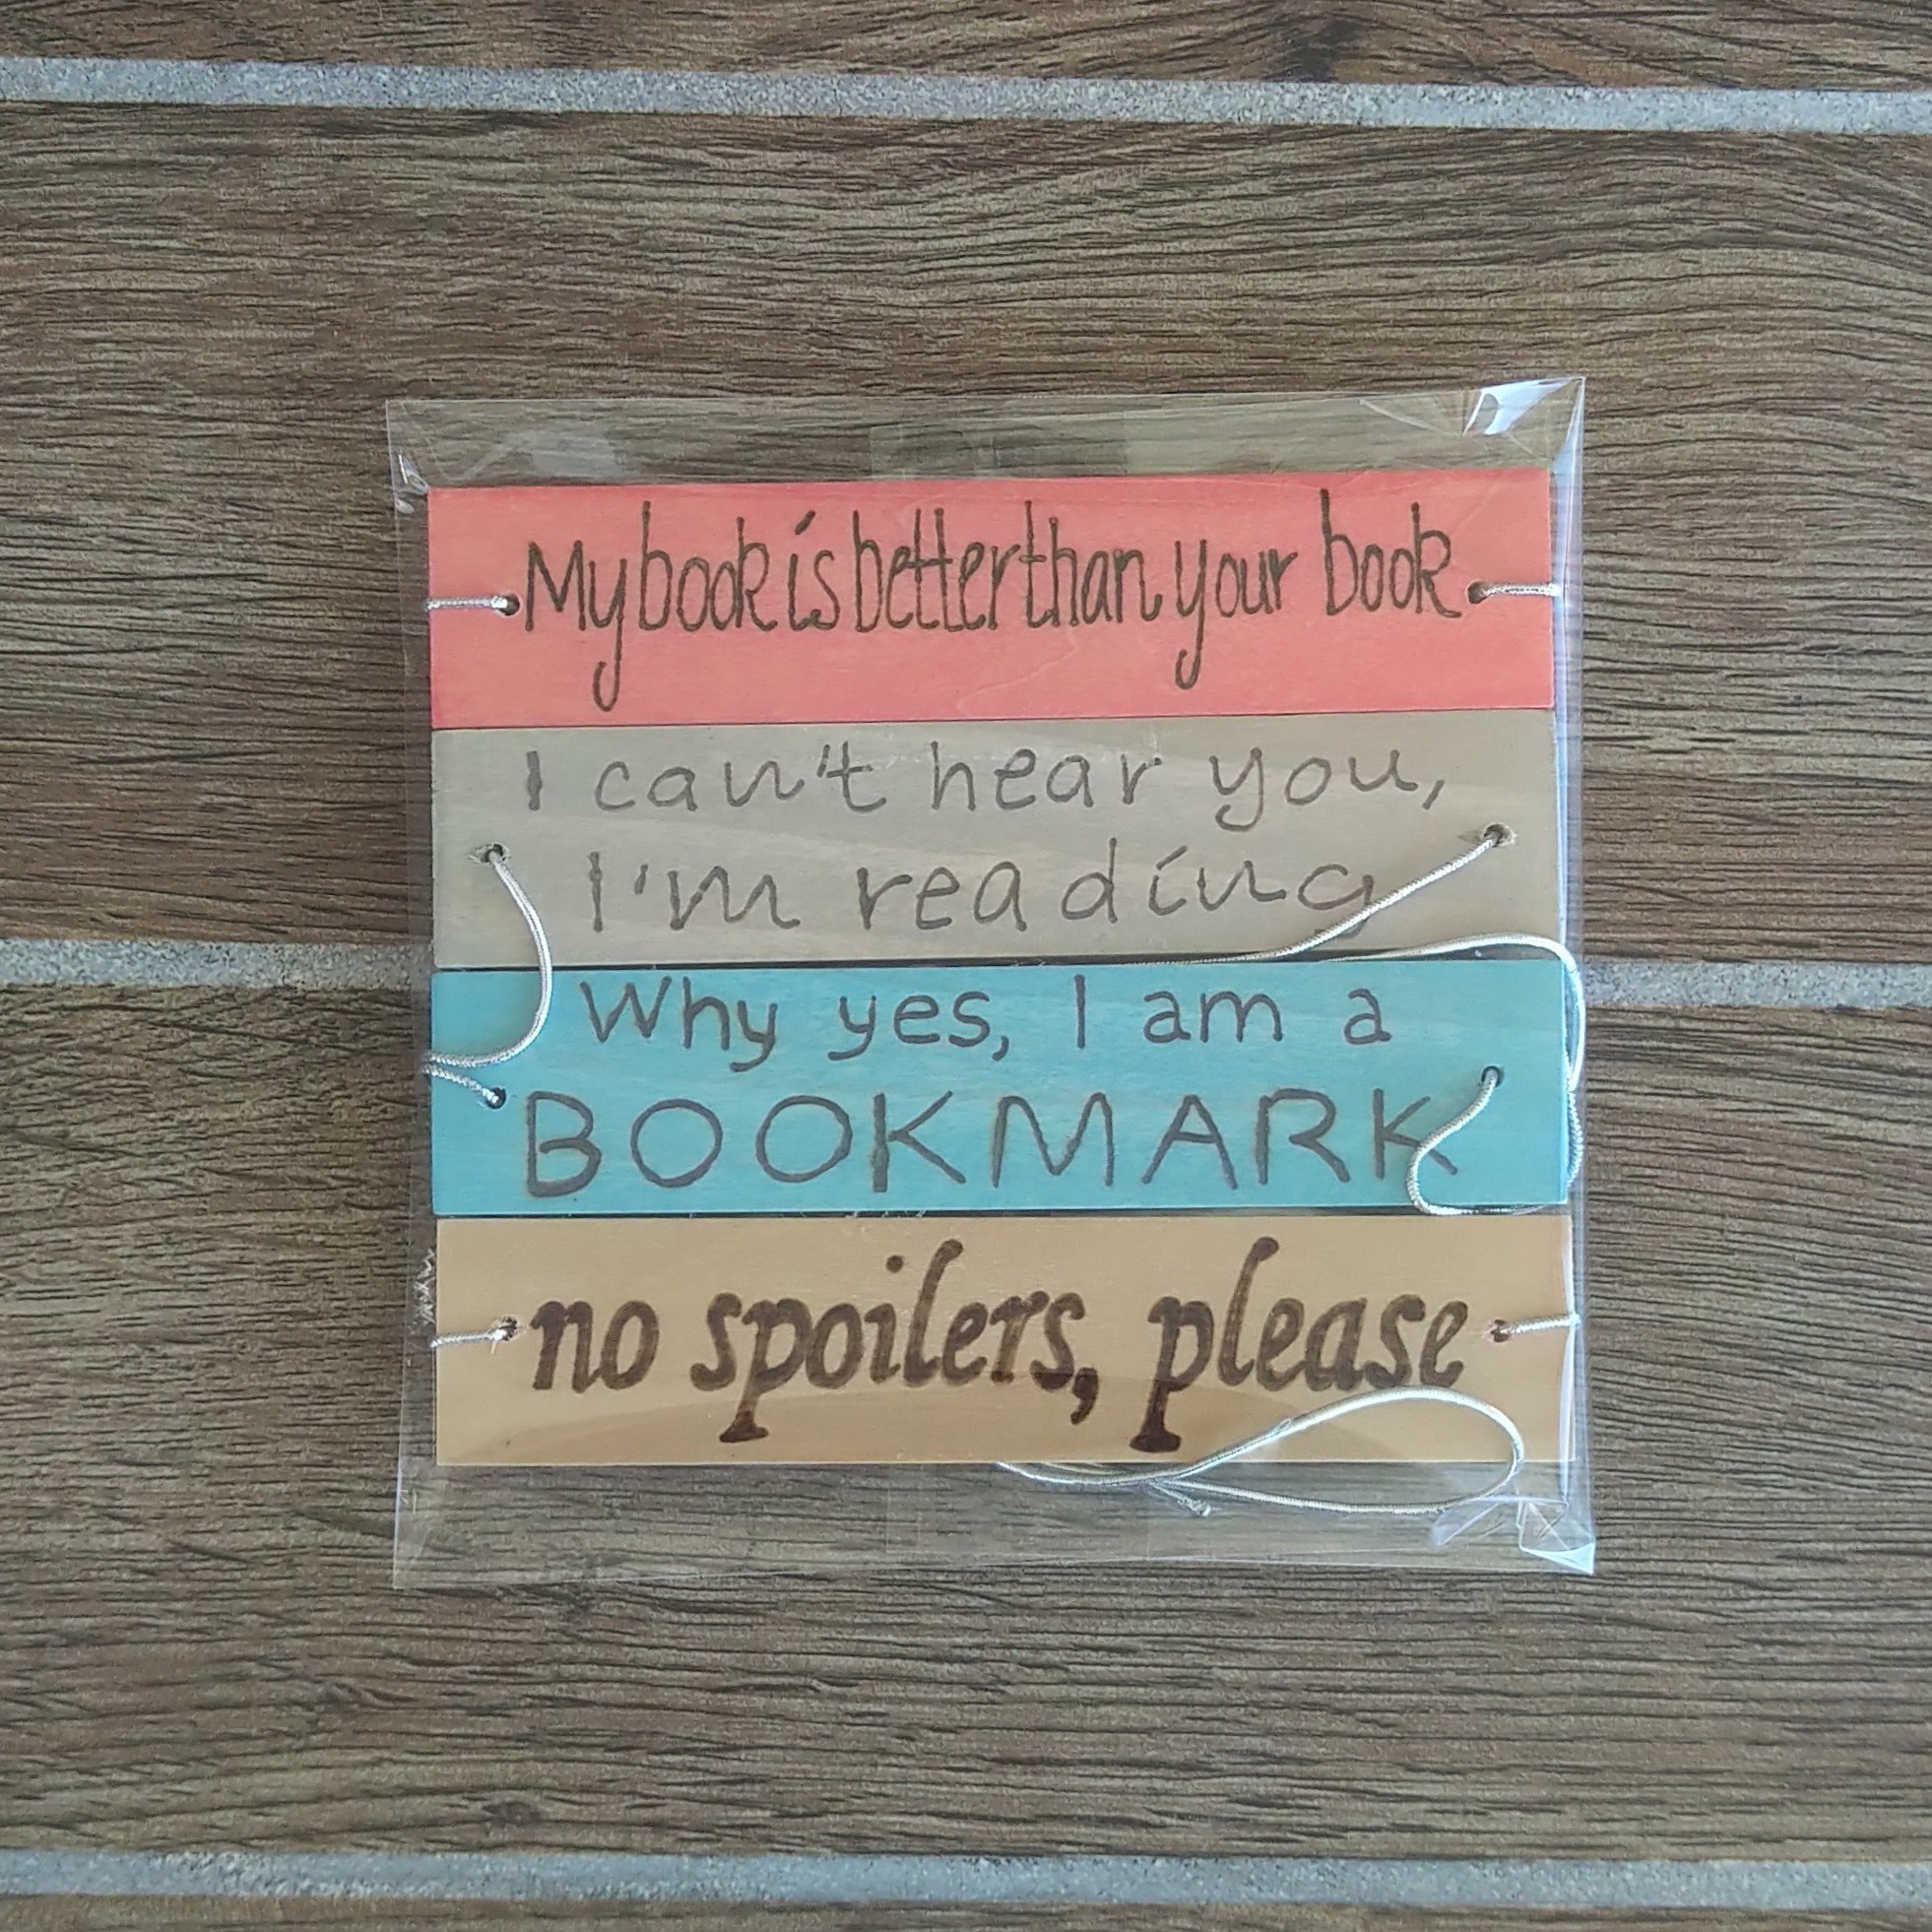 My book is better than your book.
I can't hear you,
I'm reading
Why yes, I am a
BOOKMARK
no spoilers, please